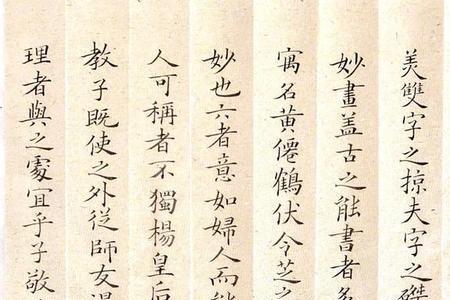 美雙字之掠夫字之磔
妙畫蓋古之能書者多
寓名黃僊鶴伏令芝之
妙也六者意如婦人而能
人可稱者不獨楊皇后
教子既使之外從師友退
理者與之處宜乎子敬